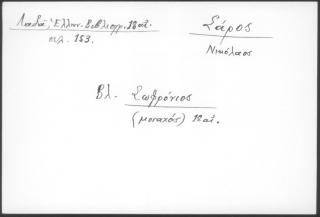 Λαδᾶ, Ἑλλην. Βιβλιογρ. 18 αἰ.
σελ. 153.
Σάρος
Νικόλαος
Βλ. Σωφρόνιος
(μοναχός) 18 αἰ.